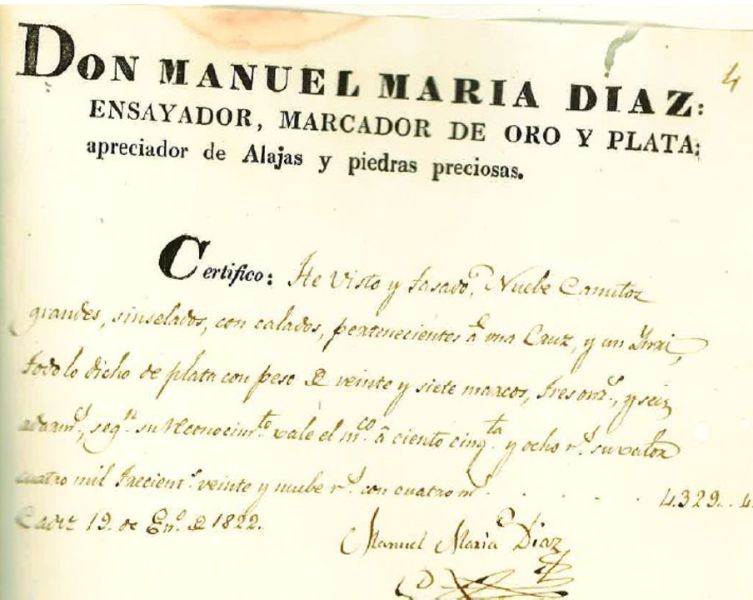 4
DON MANUEL MARIA DIAZ:
ENSAYADOR, MARCADOR DE ORO Y PLATA;
apreciador de Alajas y piedras preciosas.
Certifico: He Visto y tasado, Nuebe Canutos
grandes, sinselados, con calados, pertenecientes á una Cruz, y un Ynri,
todo lo dicho de plata con peso de veinte y siete marcos, tres onz.s, y seis
adarm.s, seg.n su reconocim.to vale el m.co á ciento cinq.ta y ocho r.s su valor
cuatro mil trecient.s veinte y nuebe r.s con cuatro m.s . . . . . . 4.329..4.
Cadiz 19. de En.o de 1822.
Manuel Maria Diaz